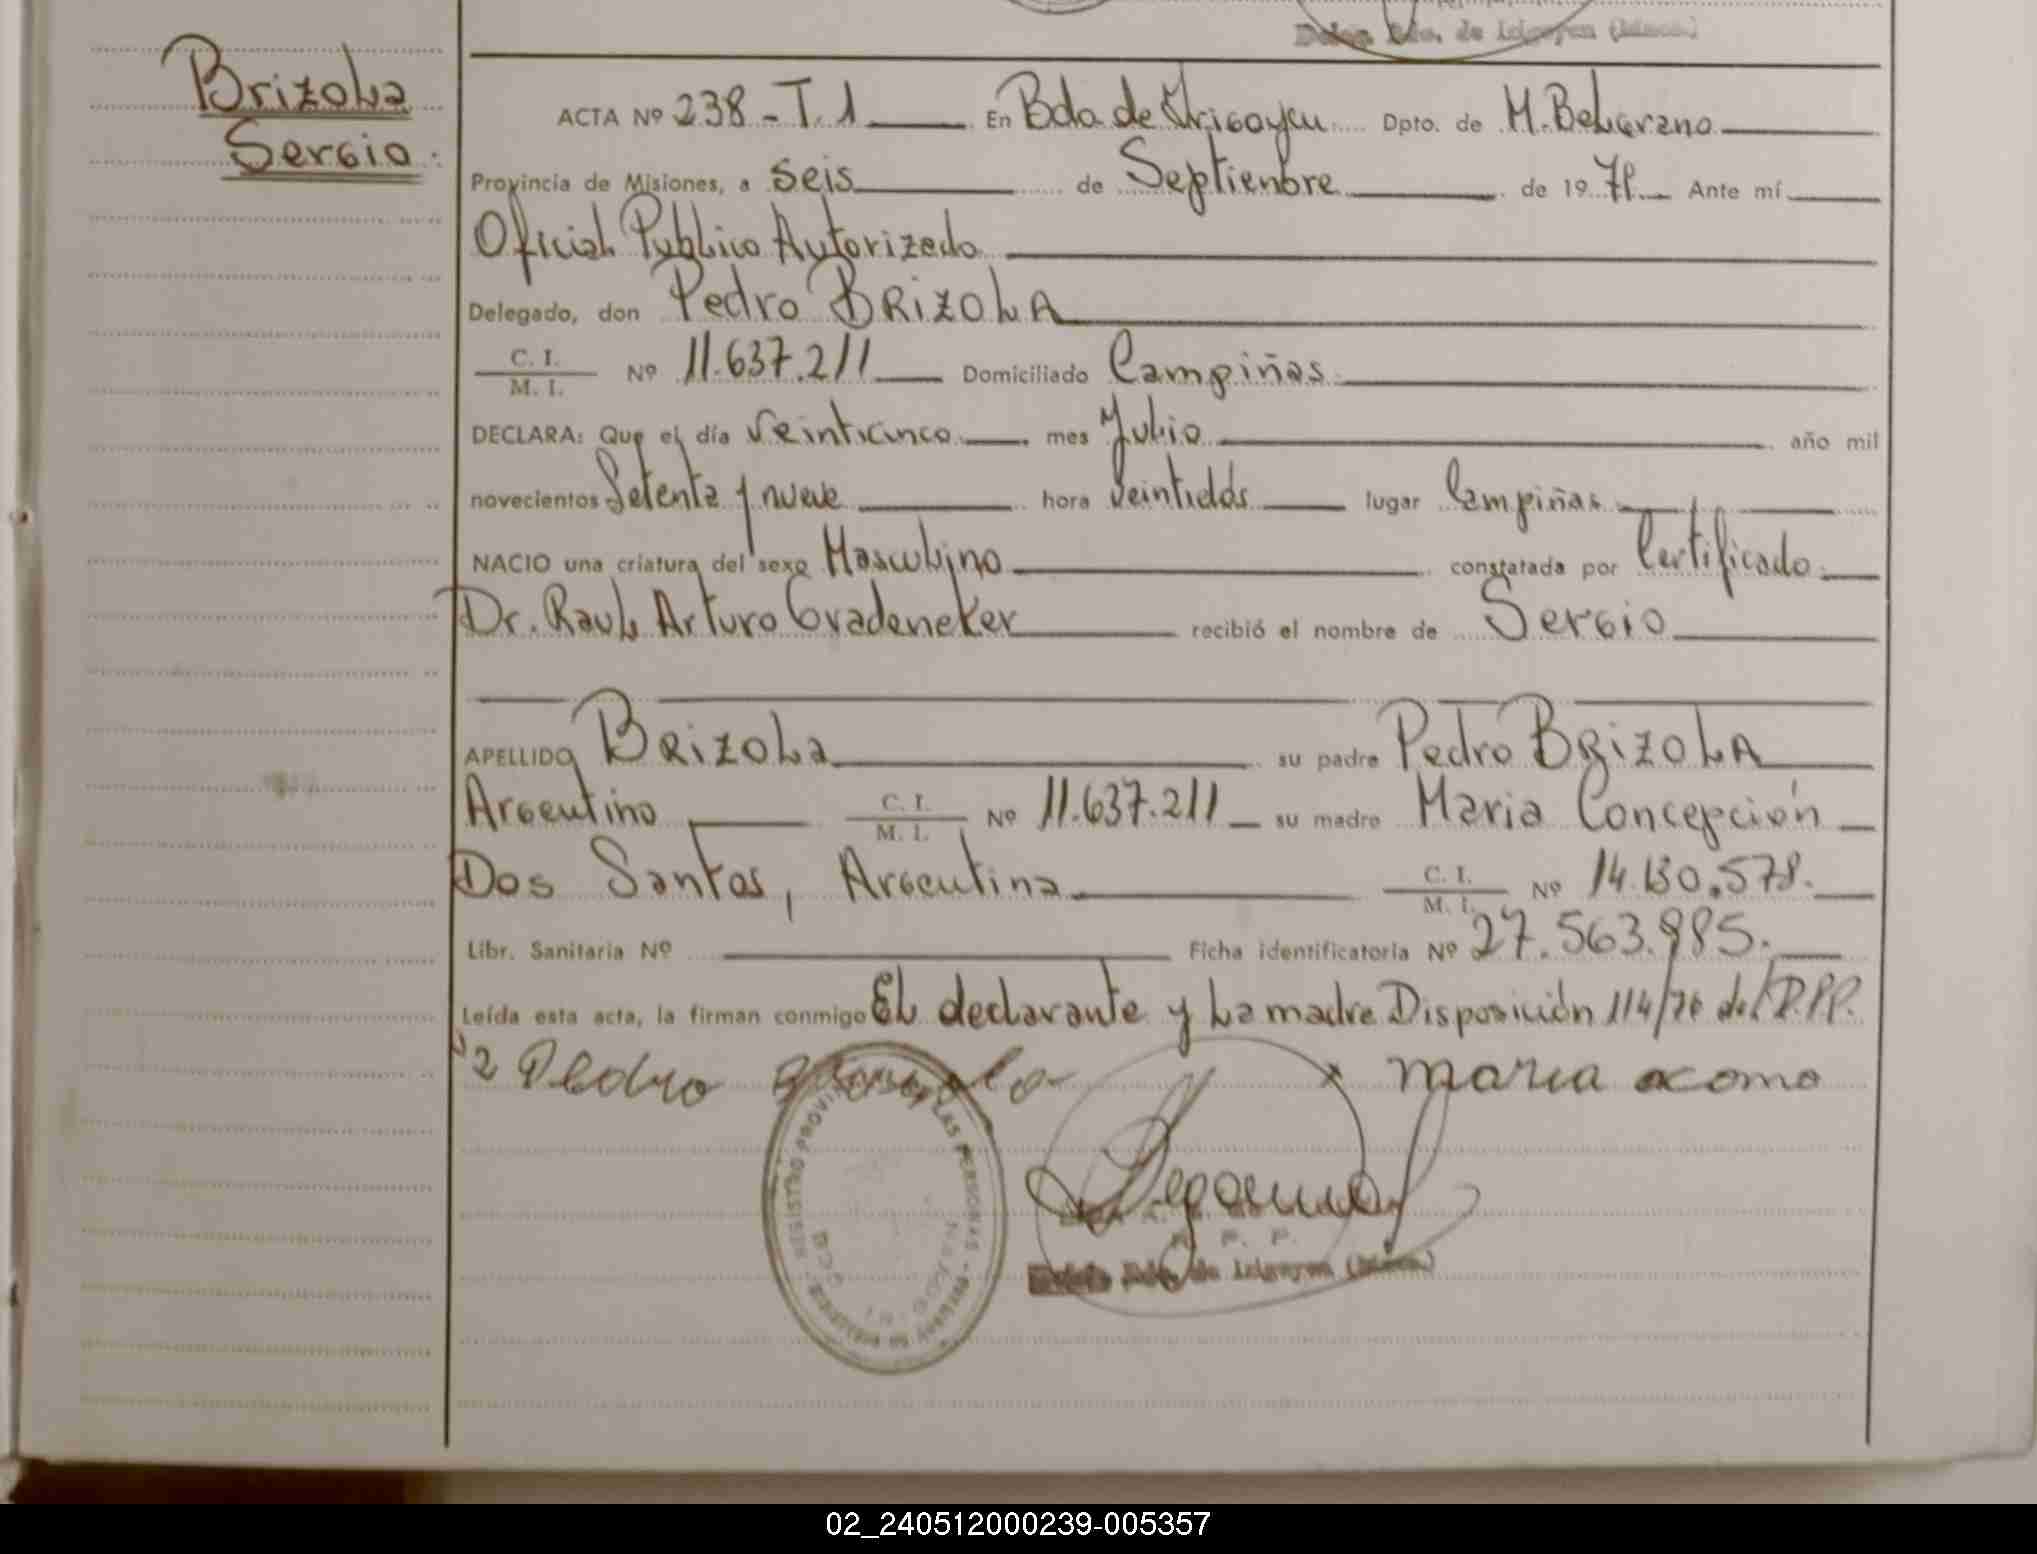 Brizola
Sergio
Deleg. Bdo. de Irigoyen (Mnes.)
ACTA Nº 238 - T. 1 En Bdo. de Yrigoyen Dpto. de M. Belgrano
Provincia de Misiones, a seis de Septienbre de 1979 Ante mí
Oficial Publico Autorizado
Delegado, don Pedro BRIZOLA
C. I.
M. I. Nº 11.637.211 Domiciliado Campiñas
DECLARA: Que el día veinticinco mes Julio año mil
novecientos Setenta y nueve hora veintidós lugar Campiñas
NACIO una criatura del sexo Masculino constatada por Certificado
Dr. Raul Arturo Gradeneker recibió el nombre de Sergio
APELLIDO Brizola su padre Pedro BRIZOLA
Argentino C. I.
M. I. Nº 11.637.211 su madre Maria Concepción
Dos Santos, Argentina C. I.
M. I. Nº 14.130.578.
Libr. Sanitaria Nº Ficha identificatoria Nº 27.563.985.
Leída esta acta, la firman conmigo El declarante y La madre Disposición 114/76 del R.P.P.
Pedro maria
REGISTRO PROVINCIAL DE LAS PERSONAS
R. P. P.
Bdo. de Irigoyen (Mnes.)
02_240512000239-005357